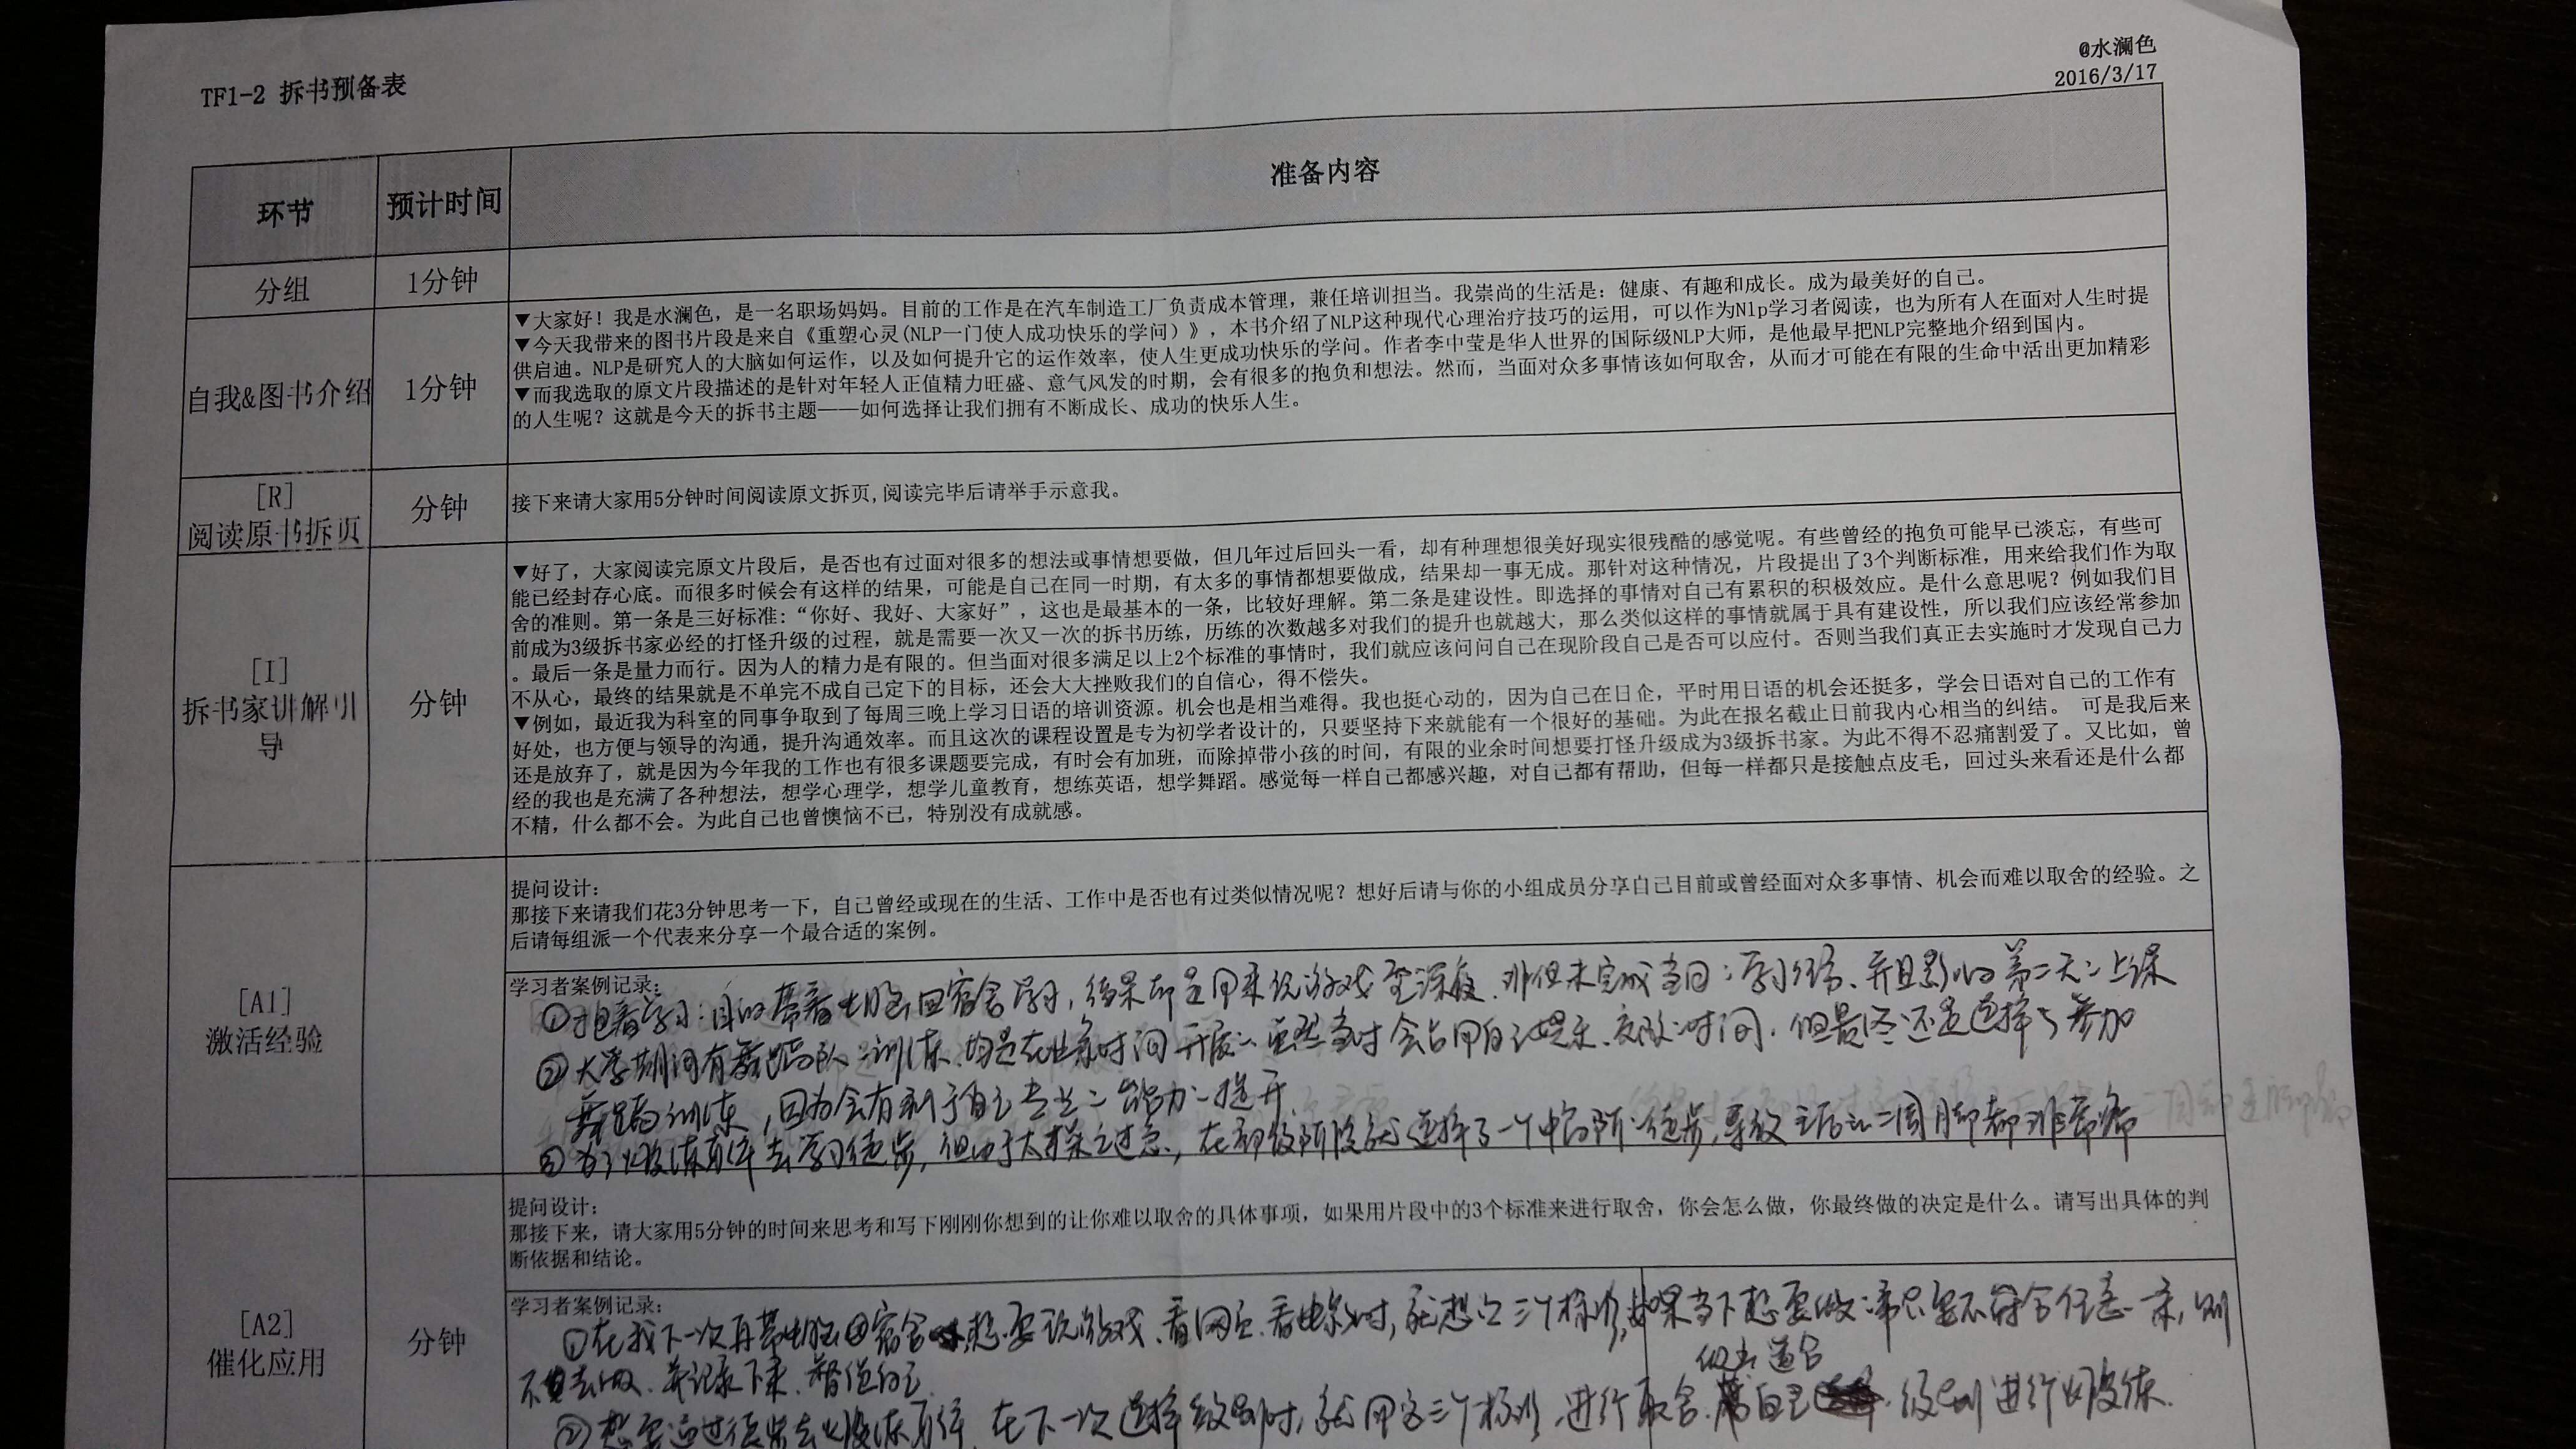 @水澜色
2016/3/17
TF1-2 拆书预备表
环节
预计时间
准备内容
分组
1分钟
自我&图书介绍
1分钟
▼大家好！我是水澜色，是一名职场妈妈。目前的工作是在汽车制造工厂负责成本管理，兼任培训担当。我崇尚的生活是：健康、有趣和成长。成为最美好的自己。
▼今天我带来的图书片段是来自《重塑心灵(NLP一门使人成功快乐的学问）》，本书介绍了NLP这种现代心理治疗技巧的运用，可以作为Nlp学习者阅读，也为所有人在面对人生时提
供启迪。NLP是研究人的大脑如何运作，以及如何提升它的运作效率，使人生更成功快乐的学问。作者李中莹是华人世界的国际级NLP大师，是他最早把NLP完整地介绍到国内。
▼而我选取的原文片段描述的是针对年轻人正值精力旺盛、意气风发的时期，会有很多的抱负和想法。然而，当面对众多事情该如何取舍，从而才可能在有限的生命中活出更加精彩
的人生呢？这就是今天的拆书主题——如何选择让我们拥有不断成长、成功的快乐人生。
[R]
阅读原书拆页
分钟
接下来请大家用5分钟时间阅读原文拆页,阅读完毕后请举手示意我。
[I]
拆书家讲解引
导
分钟
▼好了，大家阅读完原文片段后，是否也有过面对很多的想法或事情想要做，但几年过后回头一看，却有种理想很美好现实很残酷的感觉呢。有些曾经的抱负可能早已淡忘，有些可
能已经封存心底。而很多时候会有这样的结果，可能是自己在同一时期，有太多的事情都想要做成，结果却一事无成。那针对这种情况，片段提出了3个判断标准，用来给我们作为取
舍的准则。第一条是三好标准：“你好、我好、大家好”，这也是最基本的一条，比较好理解。第二条是建设性。即选择的事情对自己有累积的积极效应。是什么意思呢？例如我们目
前成为3级拆书家必经的打怪升级的过程，就是需要一次又一次的拆书历练，历练的次数越多对我们的提升也就越大，那么类似这样的事情就属于具有建设性，所以我们应该经常参加
。最后一条是量力而行。因为人的精力是有限的。但当面对很多满足以上2个标准的事情时，我们就应该问问自己在现阶段自己是否可以应付。否则当我们真正去实施时才发现自己力
不从心，最终的结果就是不单完不成自己定下的目标，还会大大挫败我们的自信心，得不偿失。
▼例如，最近我为科室的同事争取到了每周三晚上学习日语的培训资源。机会也是相当难得。我也挺心动的，因为自己在日企，平时用日语的机会还挺多，学会日语对自己的工作有
好处，也方便与领导的沟通，提升沟通效率。而且这次的课程设置是专为初学者设计的，只要坚持下来就能有一个很好的基础。为此在报名截止日前我内心相当的纠结。 可是我后来
还是放弃了，就是因为今年我的工作也有很多课题要完成，有时会有加班，而除掉带小孩的时间，有限的业余时间想要打怪升级成为3级拆书家。为此不得不忍痛割爱了。又比如，曾
经的我也是充满了各种想法，想学心理学，想学儿童教育，想练英语，想学舞蹈。感觉每一样自己都感兴趣，对自己都有帮助，但每一样都只是接触点皮毛，回过头来看还是什么都
不精，什么都不会。为此自己也曾懊恼不已，特别没有成就感。
[A1]
激活经验
提问设计：
那接下来请我们花3分钟思考一下，自己曾经或现在的生活、工作中是否也有过类似情况呢？想好后请与你的小组成员分享自己目前或曾经面对众多事情、机会而难以取舍的经验。之
后请每组派一个代表来分享一个最合适的案例。
学习者案例记录：
①抱着学习目的带着电脑回宿舍学习，结果却是用来玩游戏至深夜、非但未完成当日学习任务、并且影响第二天上课
②大学期间有舞蹈队训练、均是在业余时间开展 虽然当时会占用自己娱乐、时间，但最终还是选择了参加
舞蹈训练，因为会有利于自己专业能力提升
③为了锻炼身体去学习徒步，但由于太操之过急，在初级阶段就选择了一个中高阶徒步，导致之后二周脚都非常痛
[A2]
催化应用
分钟
提问设计：
那接下来，请大家用5分钟的时间来思考和写下刚刚你想到的让你难以取舍的具体事项，如果用片段中的3个标准来进行取舍，你会怎么做，你最终做的决定是什么。请写出具体的判
断依据和结论。
学习者案例记录：
①在我下一次再带电脑回宿舍，想要玩游戏、看网页、看电影时，就想三个标准，如果当下想要做事只要不符合任意一条，则
不去做、并记录下来、督促自己
适合
②想要通过徒步去锻炼身体，在下一次选择级别时，就用这三个标准进行取舍 自己级别进行锻炼.